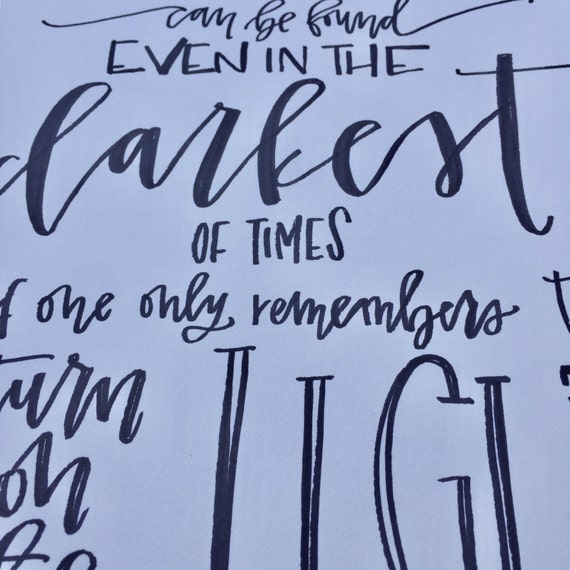 can be found
EVEN IN THE
darkest
OF TIMES
if one only remembers t
turn
on
LIG